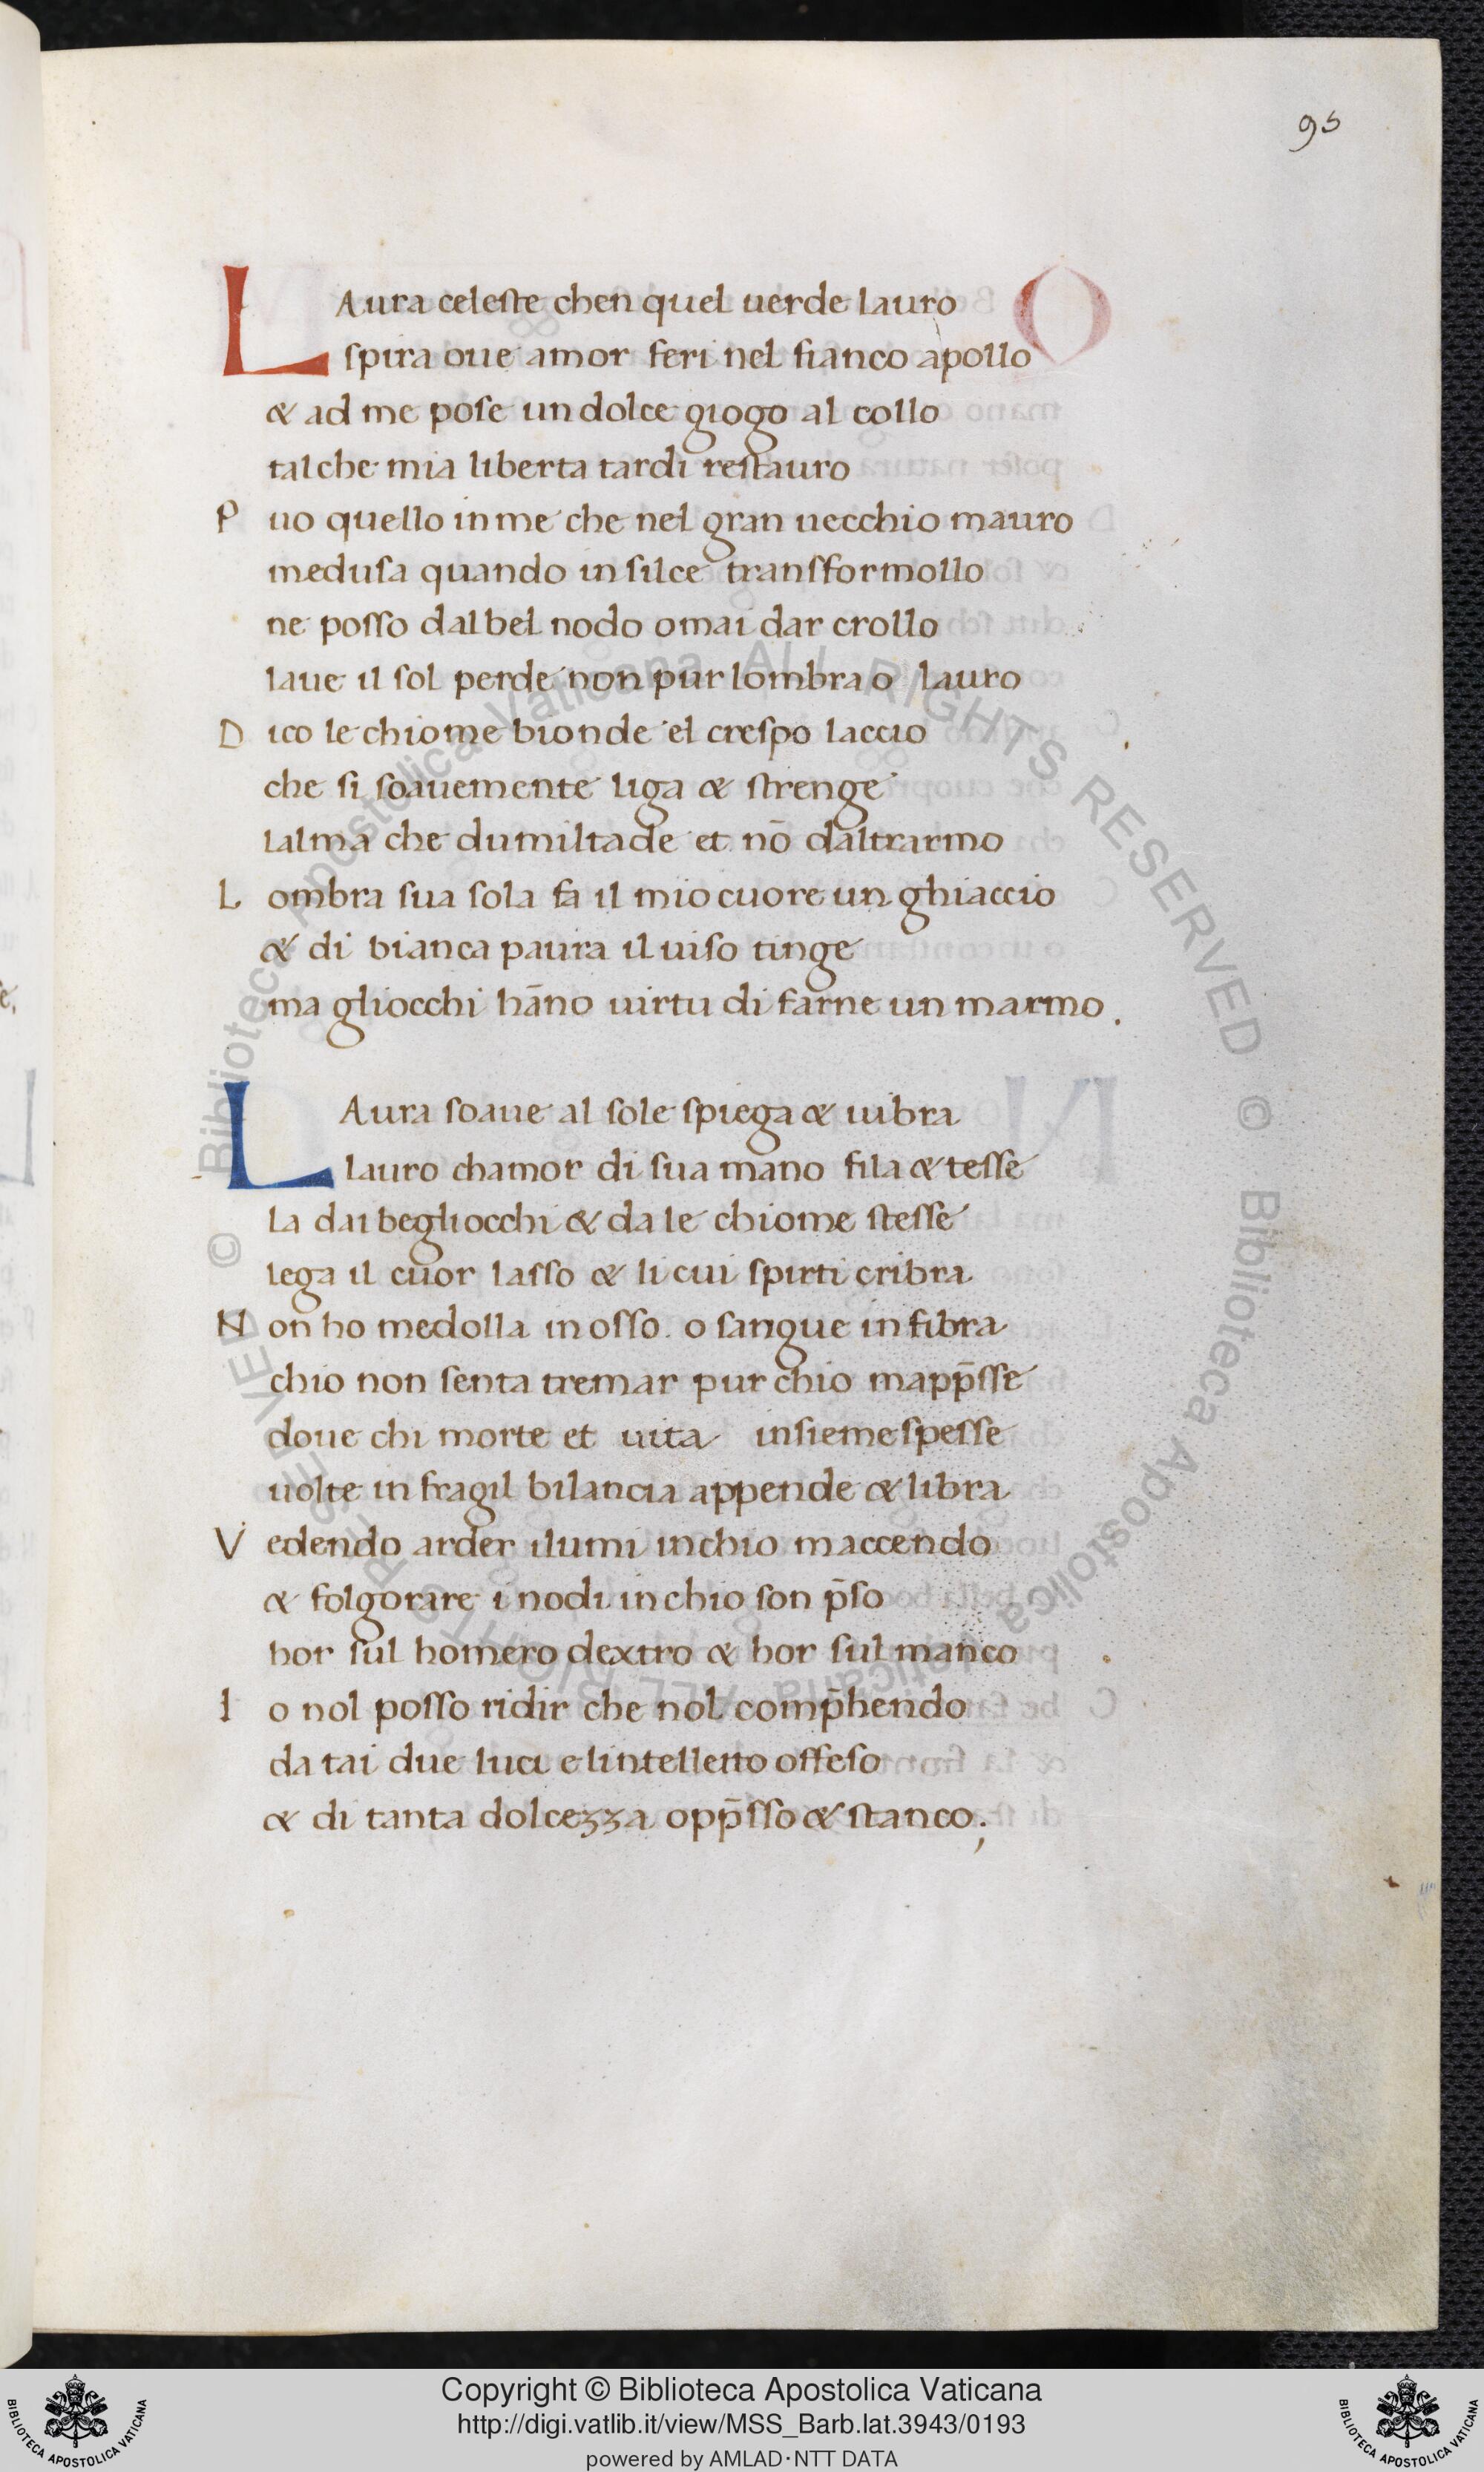 95
LAura celeste chen quel uerde lauro
spira oue amor feri nel fianco apollo
& ad me pose un dolce giogo al collo
tal che mia liberta tardi restauro
P uo quello in me che nel gran uecchio mauro
medusa quando in silce transformollo
ne posso dal bel nodo omai dar crollo
laue il sol perde non pur lombra o lauro
D ico le chiome bionde el crespo laccio
che si soauemente liga & strenge
lalma che dumiltade et nō daltrarmo
L ombra sua sola fa il mio cuore un ghiaccio
& di bianca paura il uiso tinge
ma gliocchi hāno uirtu di farne un marmo.
LAura soaue al sole spiega & uibra
lauro chamor di sua mano fila & tesse
la dai begliocchi & da le chiome stesse
lega il cuor lasso & li cui spirti cribra
N on ho medolla in osso. o sangue in fibra
chio non senta tremar pur chio mapp̄sse
doue chi morte et uita insieme spesse
uolte in fragil bilancia appende & libra
V edendo arder ilumi in chio maccendo
& folgorare i nodi in chio son p̄so
hor sul homero dextro & hor sul manco
I o nol posso ridir che nol comp̄hendo
da tai due luci e lintelletto offeso
& di tanta dolcezza opp̄sso & stanco;
© Biblioteca Apostolica Vaticana ALL RIGHTS RESERVED © Biblioteca Apostolica Vaticana ALL RIGHTS RESERVED
Copyright © Biblioteca Apostolica Vaticana
http://digi.vatlib.it/view/MSS_Barb.lat.3943/0193
powered by AMLAD·NTT DATA
BIBLIOTECA APOSTOLICA VATICANA
BIBLIOTECA APOSTOLICA VATICANA